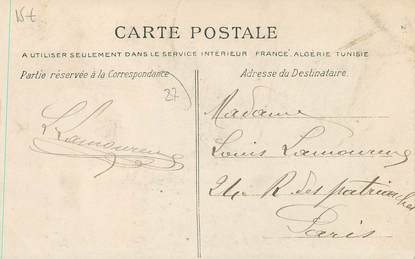 15+
CARTE POSTALE
A UTILISER SEULEMENT DANS LE SERVICE INTÉRIEUR FRANCE, ALGÉRIE TUNISIE
Partie réservée à la Correspondance
27
LLamoureux
Adresse du Destinataire.
Madame
Louis Lamoureux
24 R des patriarches
Paris